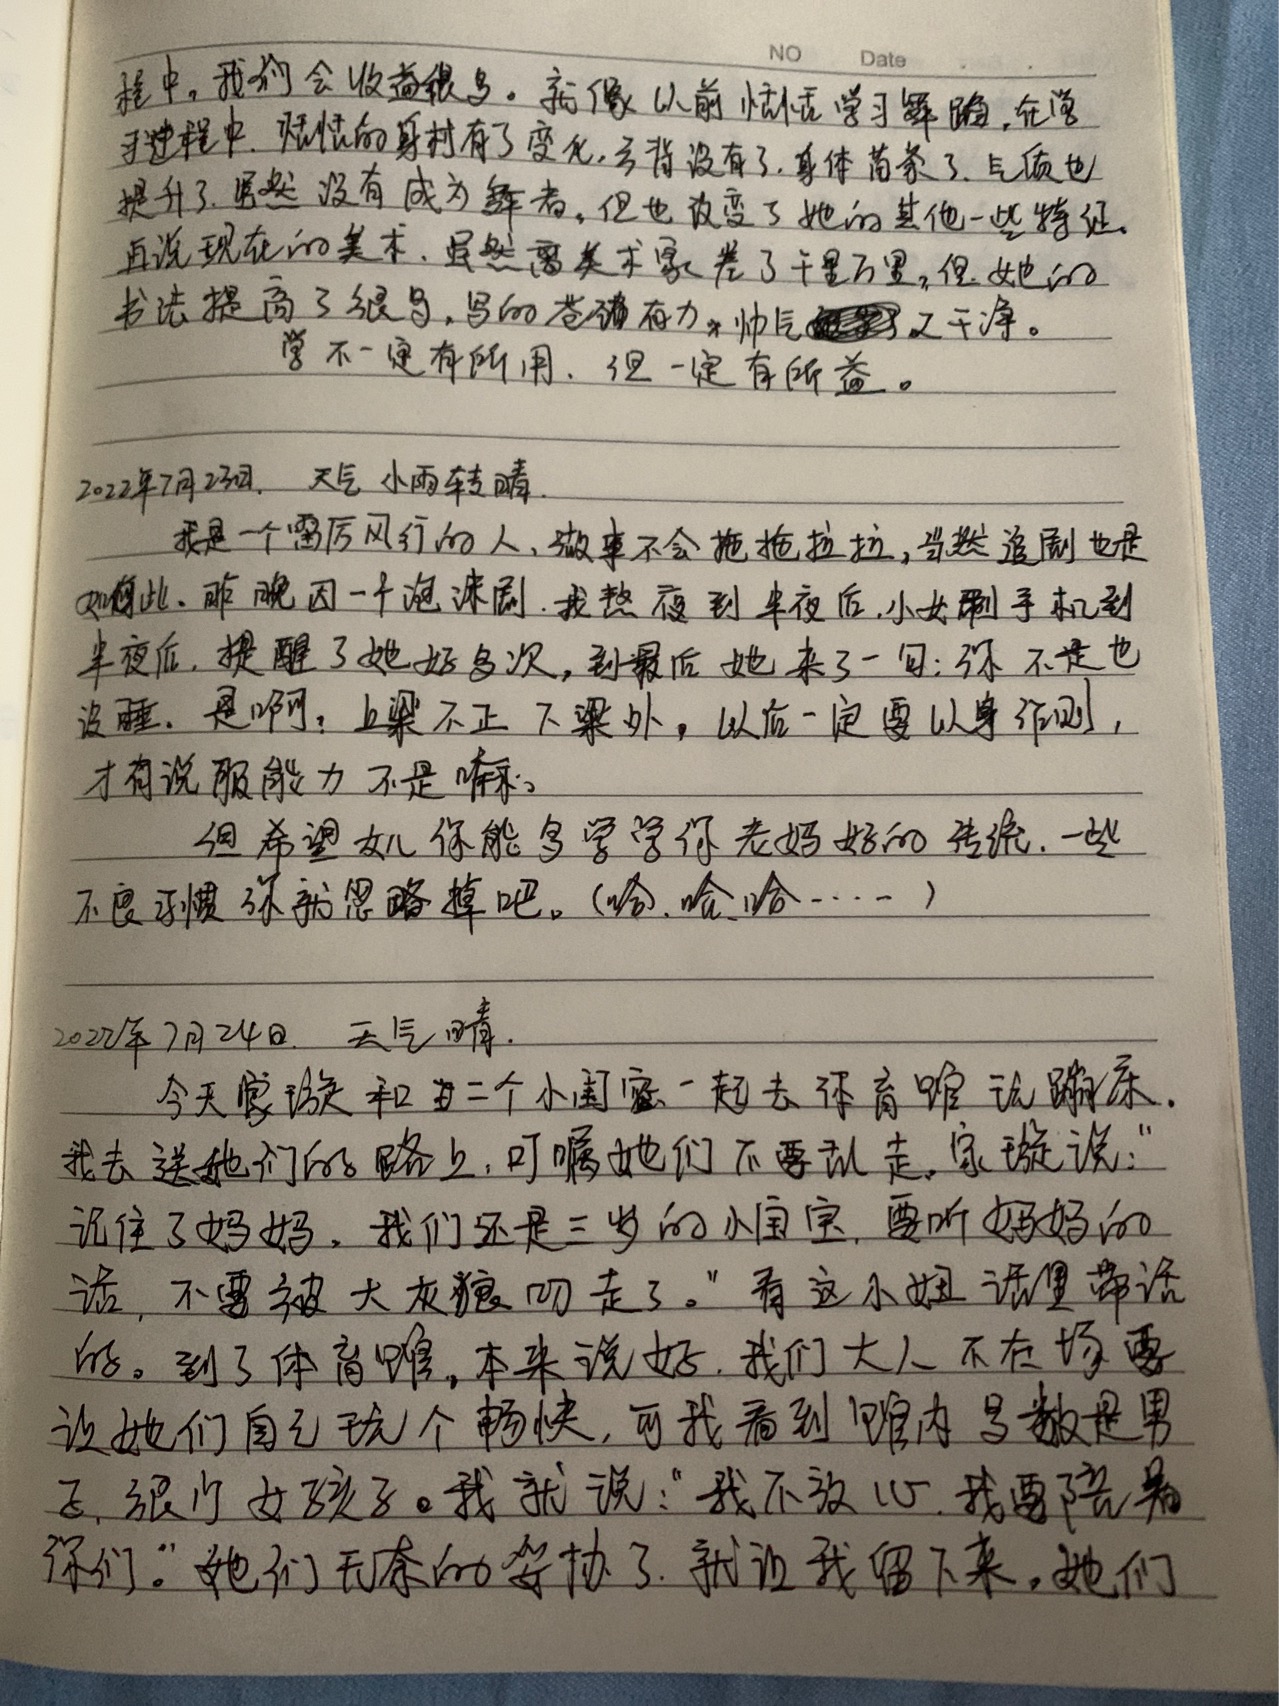 NO Date
程中，我们会收益很多。就像以前恬恬学习舞蹈，在学
习过程中，恬恬的身材有了变化，弓背没有了，身体苗条了，气质也
提升了，虽然没有成为舞者，但也改变了她的其他一些特征。
再说现在的美术，虽然离美术家差了千里万里，但她的
书法提高了很多，写的苍劲有力，帅气又干净。
学不一定有所用，但一定有所益。
2022年7月23日. 天气 小雨转晴.
我是一个雷厉风行的人，做事不会拖拖拉拉，当然追剧也是
如此。昨晚因一个泡沫剧，我熬夜到半夜后，小女刷手机到
半夜后，提醒了她好多次，到最后她来了一句：你不是也
没睡。是啊，上梁不正下梁外，以后一定要以身作则，
才有说服能力不是嘛。
但希望女儿你能多学学你老妈好的传统，一些
不良习惯你就忽略掉吧。（哈、哈、哈……）
2022年7月24日. 天气晴.
今天家璇和另二个小闺蜜一起去体育馆玩蹦床.
我去送她们的路上，叮嘱她们不要乱走，家璇说：“
记住了妈妈，我们还是三岁的小宝宝，要听妈妈的
话，不要被大灰狼叼走了。”看这小妞话里带话
的。到了体育馆，本来说好，我们大人不在场要
让她们自己玩个畅快，可我看到馆内多数是男
子，很少女孩子。我就说：“我不放心，我要陪着
你们。”她们无奈的妥协了，就让我留下来。她们